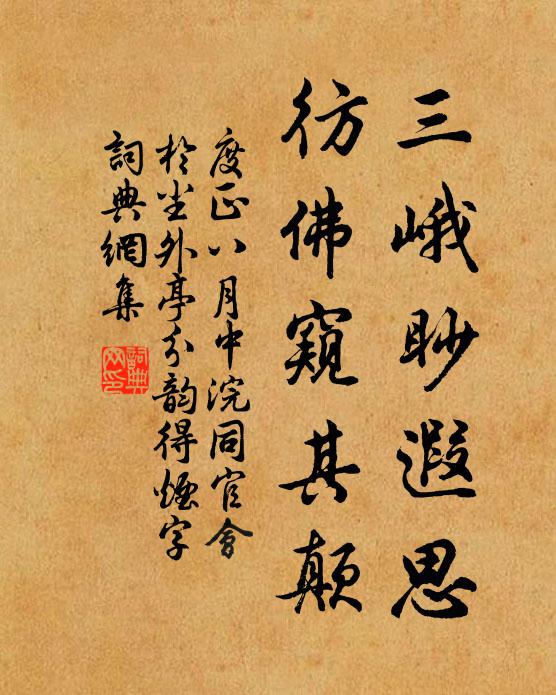 三峨眇遐思
彷佛窥其颠
度正八月中浣同官會
於坐外亭分韵得烟字
詞典網集
詞典网印